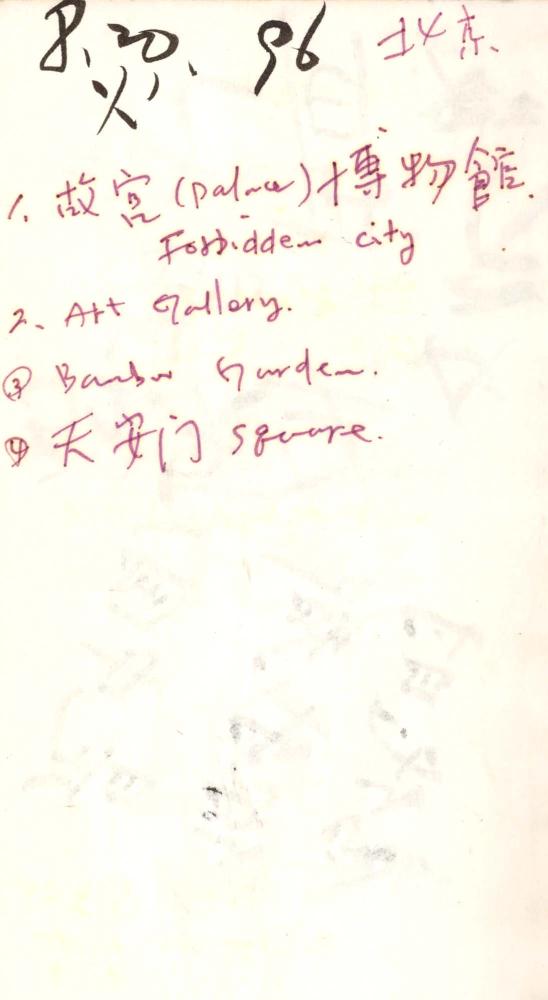 8.20. 96 北京
火
1. 故宫 (palace) 博物館.
Forbidden city
2. Art Gallery.
③ Bamboo Garden.
④ 天安门 square.